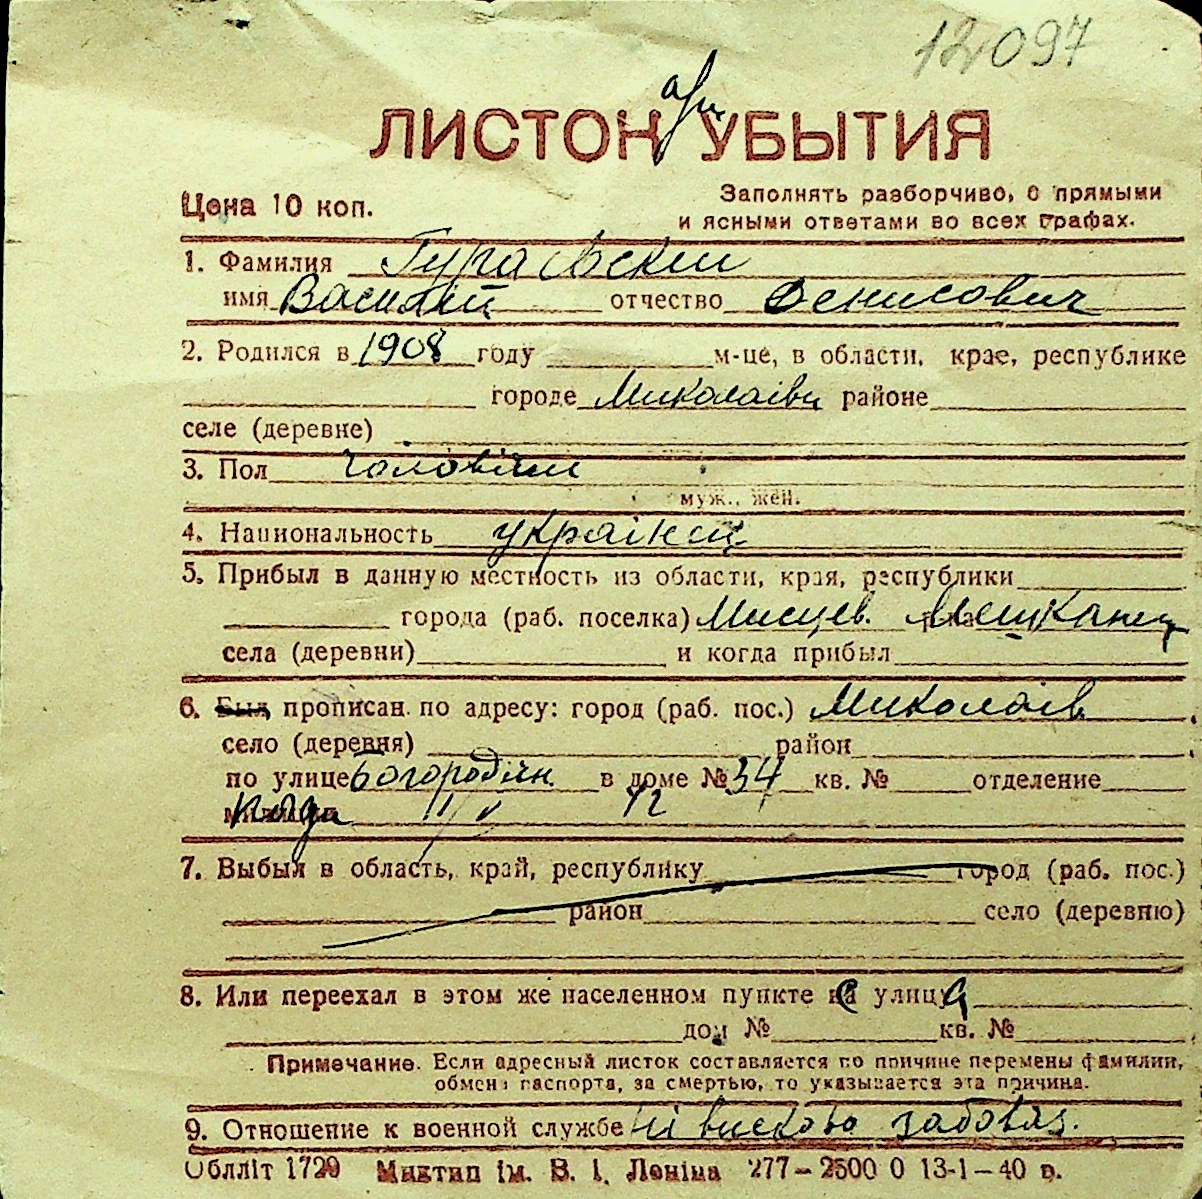 12097
ЛИСТОК УБЫТИЯ
Цена 10 коп.
Заполнять разборчиво, с прямыми
и ясными ответами во всех графах.
1. Фамилия Гураевский
имя Василий отчество Денисович
2. Родился в 1908 году м-це, в области, крае, республике
городе Миколаїві районе
селе (деревне)
3. Пол чоловічий
муж., жен.
4. Национальность українец
5. Прибыл в данную местность из области, края, республики
города (раб. поселка) Мисцев. Мешканец
села (деревни) и когда прибыл
6. Был прописан по адресу: город (раб. пос.) Миколаїв
село (деревня) район
по улице Богородічн в доме № 34 кв. № отделение
милиции 12
7. Выбыл в область, край, республику город (раб. пос.)
район село (деревню)
8. Или переехал в этом же населенном пункте на улицу
дом № кв. №
Примечание. Если адресный листок составляется по причине перемены фамилии,
обмена паспорта, за смертью, то указывается эта причина.
9. Отношение к военной службе
Облліт 1729 Миктип ім. В. І. Леніна 277—2500 0 13-1—40 в.